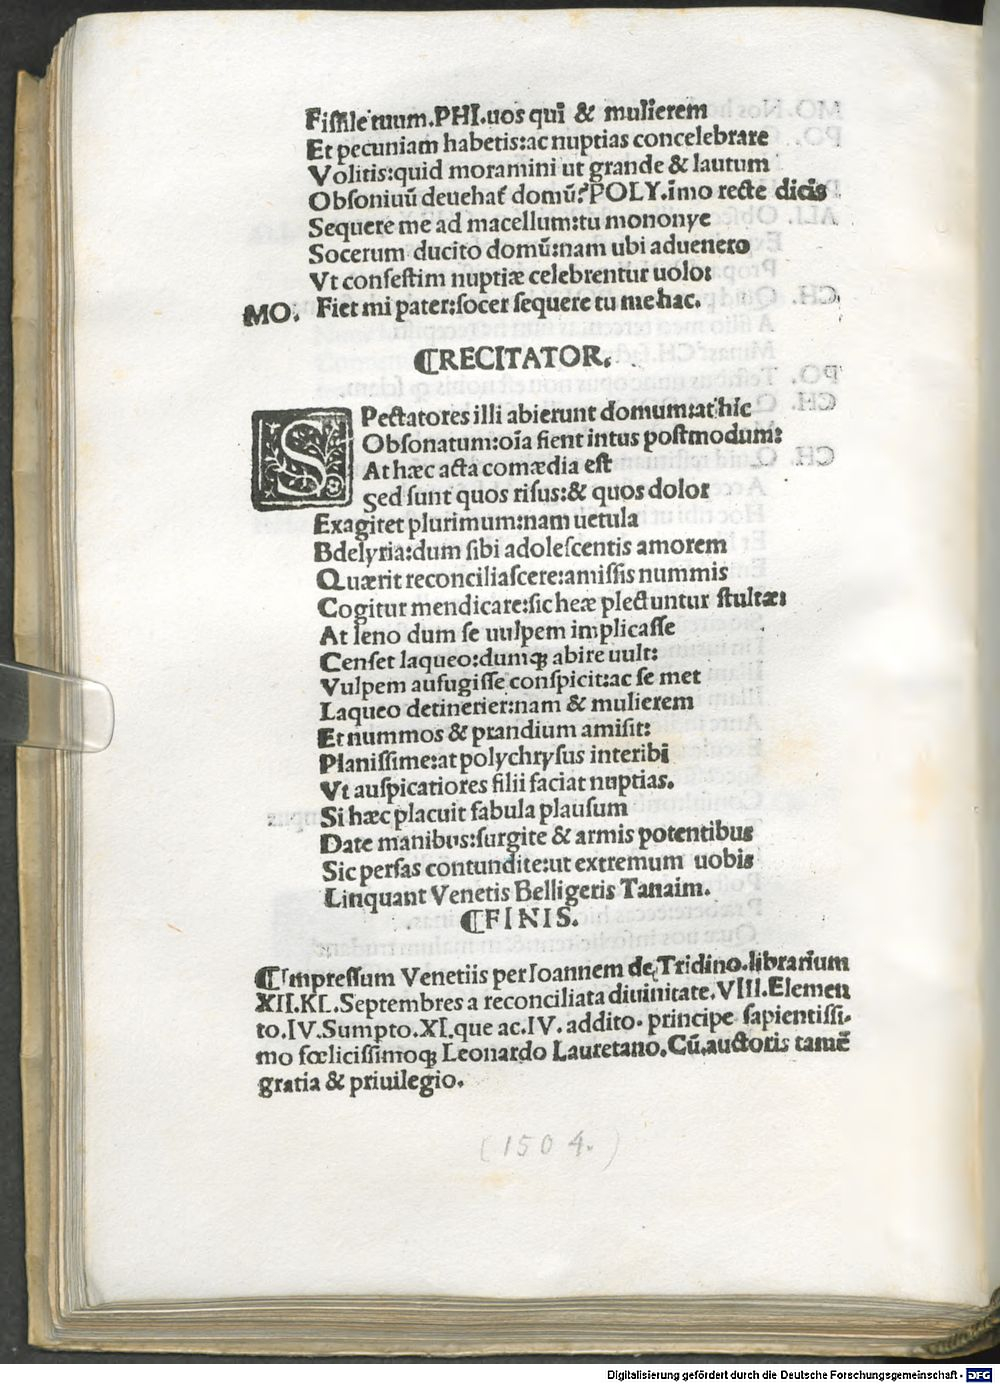 Fiſſile tuum.PHI.uos qui & mulierem
Et pecuniam habetis:ac nuptias concelebrare
Volitis:quid moramini ut grande & lautum
Obſoniuū deuehat domū?POLY.imo recte dicis
Sequere me ad macellum:tu mononye
Socerum ducito domū:nam ubi aduenero
Vt confeſtim nuptiæ celebrentur uolo:
MO. Fiet mi pater:ſocer ſequere tu me hac.
⸿RECITATOR.
SPectatores illi abierunt domum:at hic
Obſonatum:oīa fient intus poſtmodum:
At hæc acta comædia eſt
Sed ſunt quos riſus:& quos dolor
Exagitet plurimum:nam uetula
Bdelyria:dum ſibi adoleſcentis amorem
Quærit reconciliaſcere:amiſſis nummis
Cogitur mendicare:ſic heæ plectuntur ſtultæ:
At leno dum ſe uulpem implicaſſe
Cenſet laqueo:dumqꝫ abire uult:
Vulpem aufugiſſe conſpicit:ac ſe met
Laqueo detinerier:nam & mulierem
Et nummos & prandium amiſit:
Planiſſime:at polychryſus interibi
Vt auſpicatiores filii faciat nuptias.
Si hæc placuit fabula plauſum
Date manibus:ſurgite & armis potentibus
Sic perſas contundite:ut extremum uobis
Linquant Venetis Belligeris Tanaim.
⸿FINIS.
⸿Impreſſum Venetiis per Ioannem de Tridino.librarium
XII.KL.Septembres a reconciliata diuinitate.VIII.Elemen
to.IV.Sumpto.XI.que ac.IV. addito. principe ſapientiſſi-
mo fœliciſſimoqꝫ Leonardo Lauretano.Cū.auctoris tamē
gratia & priuilegio.
(1504.)
Digitalisierung gefördert durch die Deutsche Forschungsgemeinschaft - DFG